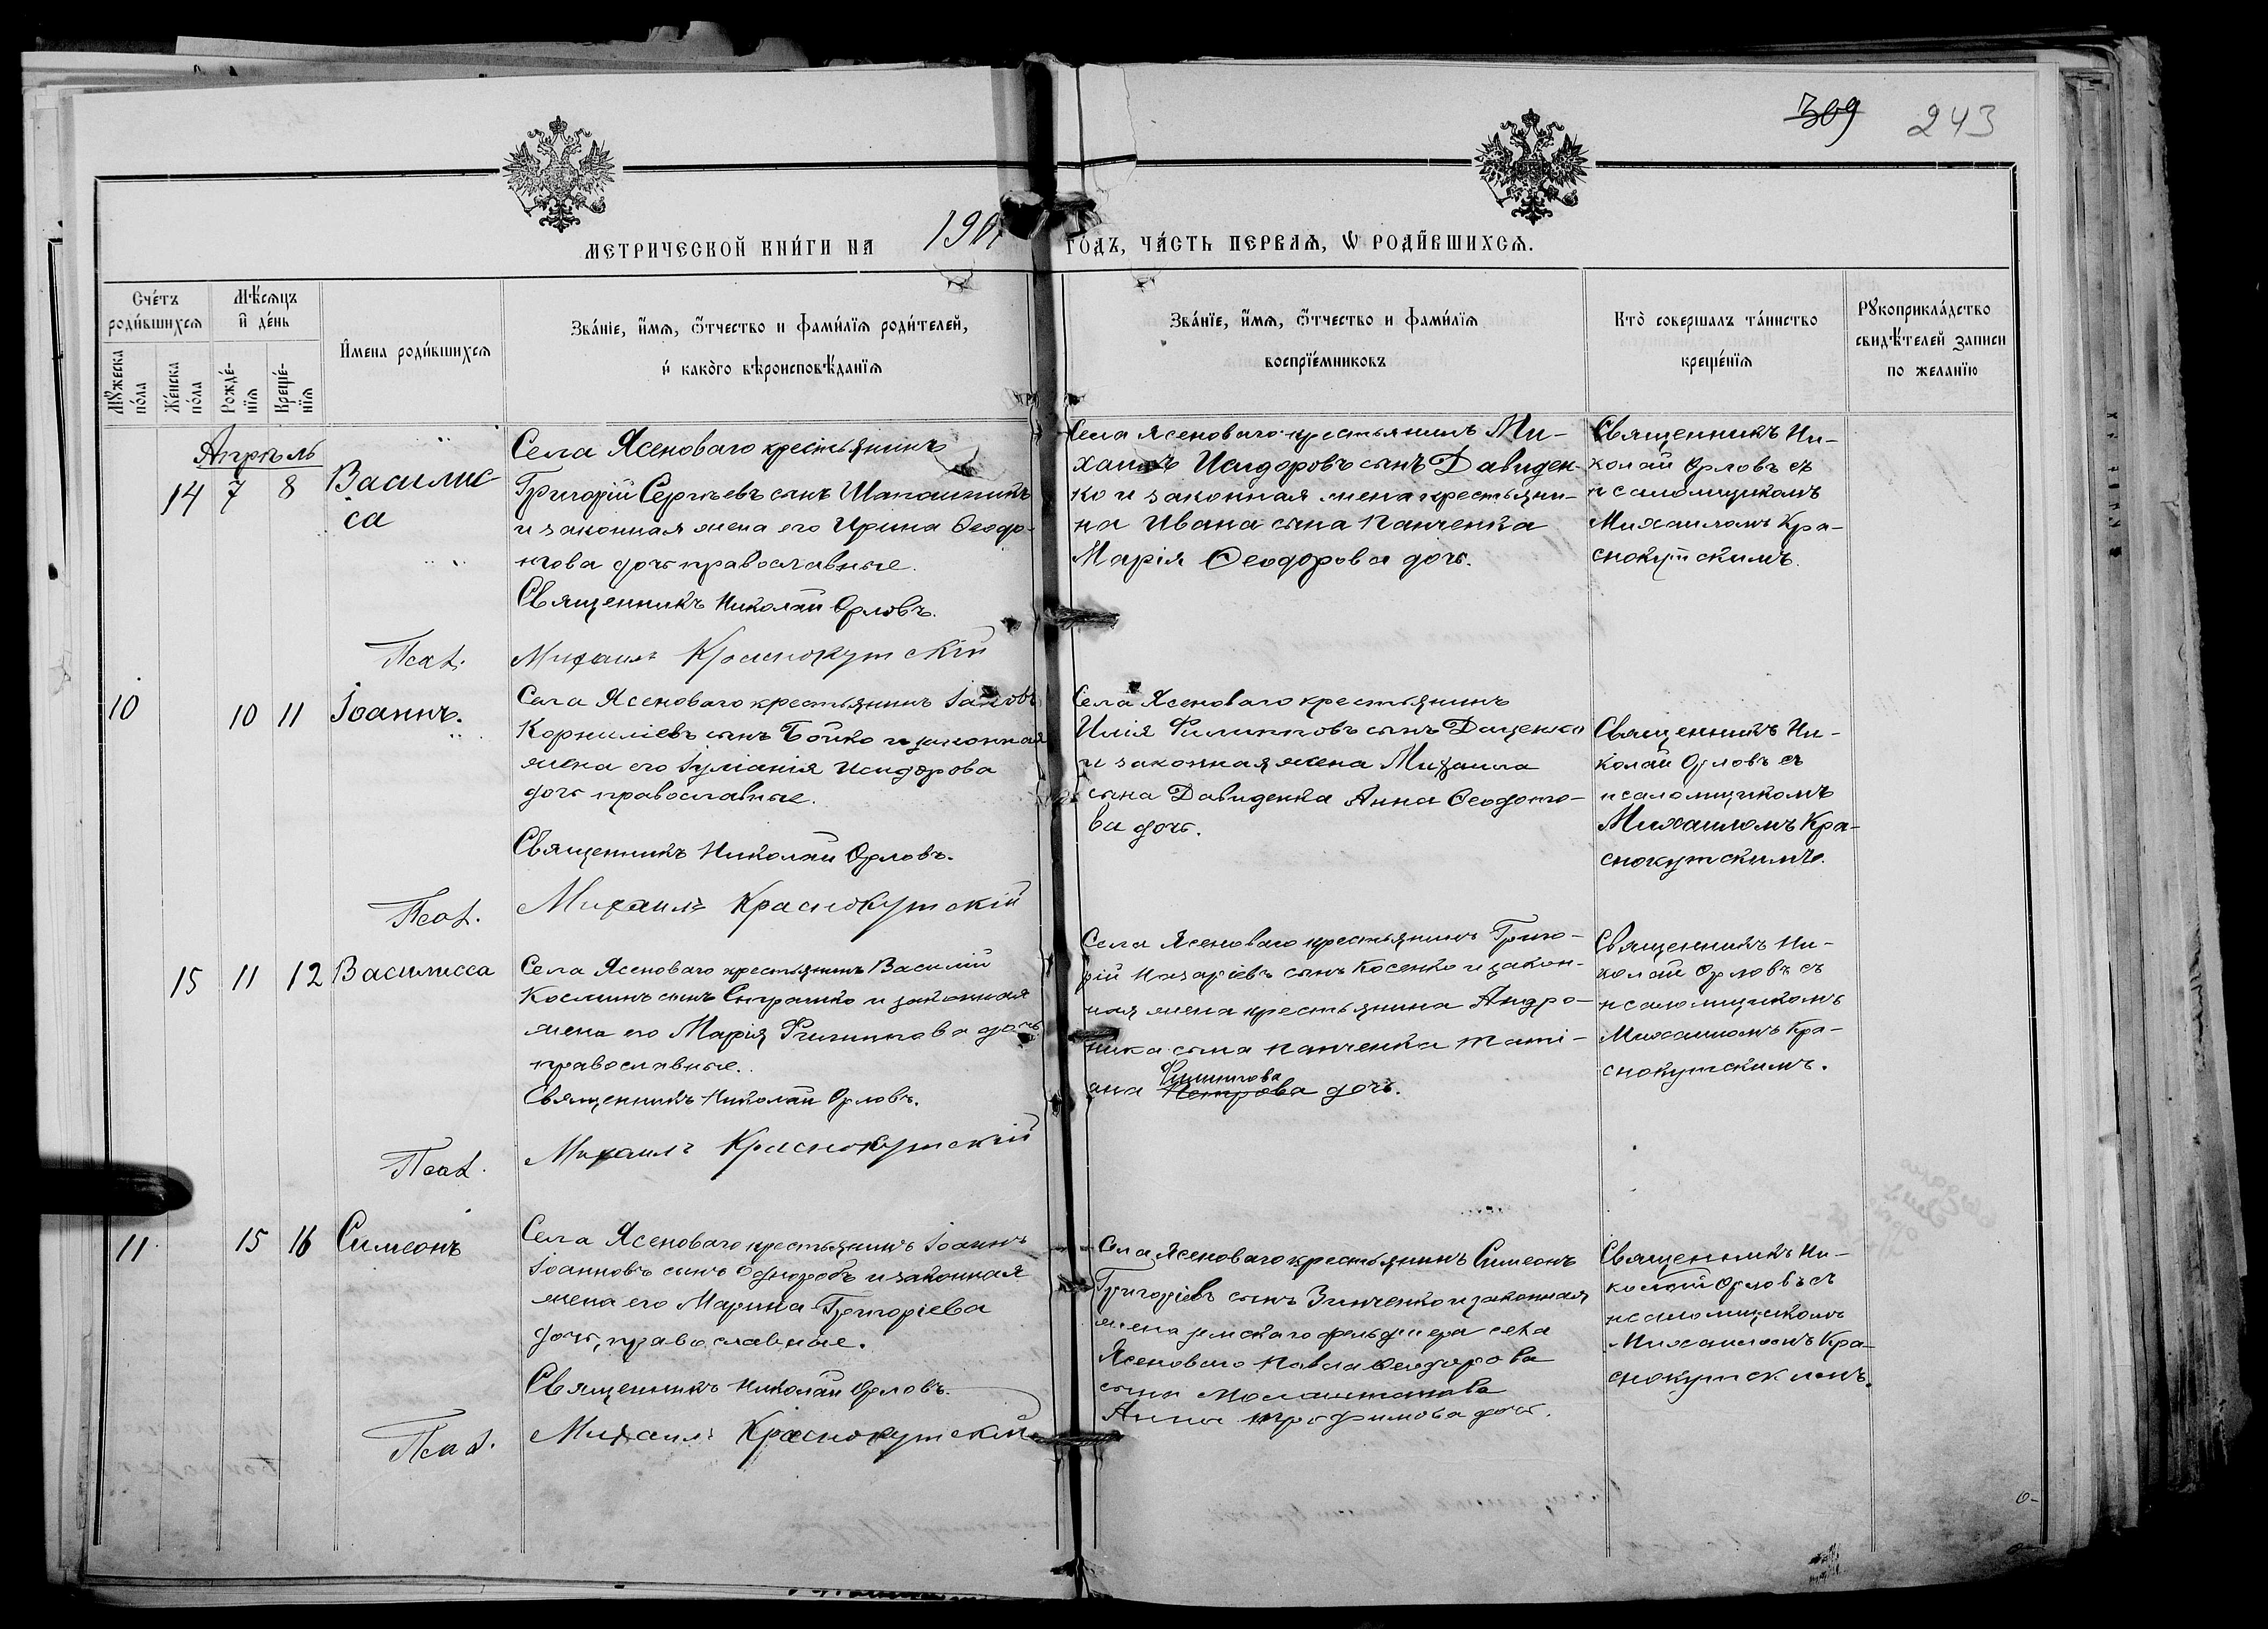 309 243
МЕТРИЧЕСКОЙ КНИ́ГИ НА 190 ГО́ДЪ, ЧА́СТЬ ПЕРВАЯ, Ѡ РОДИ́ВШИХСЯ.
Сче́тъ роди́вшихся
Мѣ́сяцъ и҆ де́нь
Мꙋ́жеска по́ла
Же́нска по́ла
Рожде́-нїя
Креще́-нїя
И҆мена роди́вшихся
Зва́нїе, и҆́мя, ѻ҆́тчество и фами́лїя роди́телей,
и҆ како́го вѣроисповѣ́данїя
Зва́нїе, и҆́мя, ѻ҆́тчество и фами́лїя
воспрїе́мниковъ
Кто̀ совершалъ та́инство
креще́нїя
Рꙋкоприкла́дство
свидѣ́телей записи
по желанїю
Апрѣль
14 7 8 Василис
са
Села Ясеноваго крестьянинъ
Григорій Сергѣевъ сынъ
и законная жена его Ирина Ѳеодо-
това дочь православные.
Священникъ Николай Орловъ.
Псал. Михаилъ Краснокутскій
Села Ясеноваго крестьянинъ Ми-
хаилъ Исидоровъ сынъ Давиден-
ко и законная жена крестьяни-
на Ивана сына Панченка
Марія Ѳеодорова дочь.
Священникъ Ни-
колай Орловъ съ
псаломщикомъ
Михаиломъ Кра-
снокутскимъ.
10 10 11 Іоаннъ.
Села Ясеноваго крестьянинъ Іаковъ
Корниліевъ сынъ Бойко и законная
жена его Іуліанія Исидорова
дочь православные.
Священникъ Николай Орловъ.
Псал. Михаилъ Краснокутскій
Села Ясеноваго крестьянинъ
Илія Филипповъ сынъ Даценко
и законная жена Михаила
сына Давиденка Анна Ѳеодото-
ва дочь.
Священникъ Ни-
колай Орловъ съ
псаломщикомъ
Михаиломъ Кра-
снокутскимъ.
15 11 12 Василисса
Села Ясеноваго крестьянинъ Василій
Косминъ сынъ и законная
жена его Марія Филиппова дочь
православные.
Священникъ Николай Орловъ.
Псал. Михаилъ Краснокутскій
Села Ясеноваго крестьянинъ Григо-
рій Назаріевъ сынъ Косенко и закон-
ная жена крестьянина Андро-
ника сына Панченка Таті-
Филиппова
ана Петрова дочь.
Священникъ Ни-
колай Орловъ съ
псаломщикомъ
Михаиломъ Кра-
снокутскимъ.
11 15 16 Симеонъ
Села Ясеноваго крестьянинъ Іоаннъ
Іоанновъ сынъ и законная
жена его Марина Григоріева
дочь, православные.
Священникъ Николай Орловъ.
Псал. Михаилъ Краснокутскій
Села Ясеноваго крестьянинъ Симеонъ
Григоріевъ сынъ Зинченко и законная
жена земскаго фельдшера села
Ясеноваго Павла Ѳеодорова
сына
Анна Трофимова дочь.
Священникъ Ни-
колай Орловъ съ
псаломщикомъ
Михаиломъ Кра-
снокутскимъ.